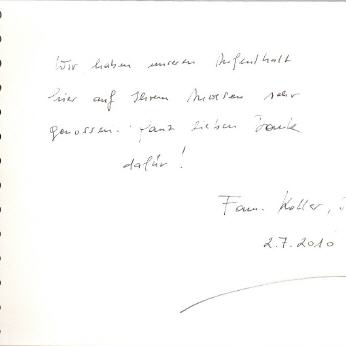 Wir haben unseren Aufenthalt
hier auf Ihrem Anwesen sehr
genossen. Ganz lieben Dank
dafür!
Fam. Koller,
2.7.2010